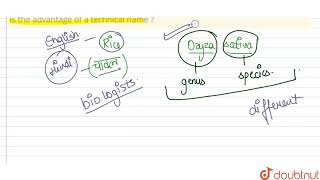 is the advantage of a technical name ?
English Rice
Hindi चावल
biologists.
Oryza sativa
genus species.
different
doubtnut